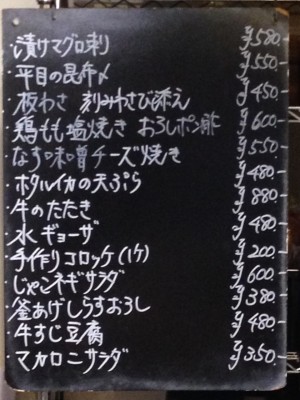 ・漬けマグロ刺 ¥580-
・平目の昆布〆 ¥550-
・板わさ 刻みわさび添え ¥450-
・鶏もも塩焼き おろしポン酢 ¥600-
・なす味噌チーズ焼き ¥550-
・ホタルイカの天ぷら ¥480-
・牛のたたき ¥880-
・水ギョーザ ¥480-
・手作りコロッケ(1ケ) ¥200-
・じゃこネギサラダ ¥600-
・釜あげしらすおろし ¥380-
・牛すじ豆腐 ¥480-
・マカロニサラダ ¥350-